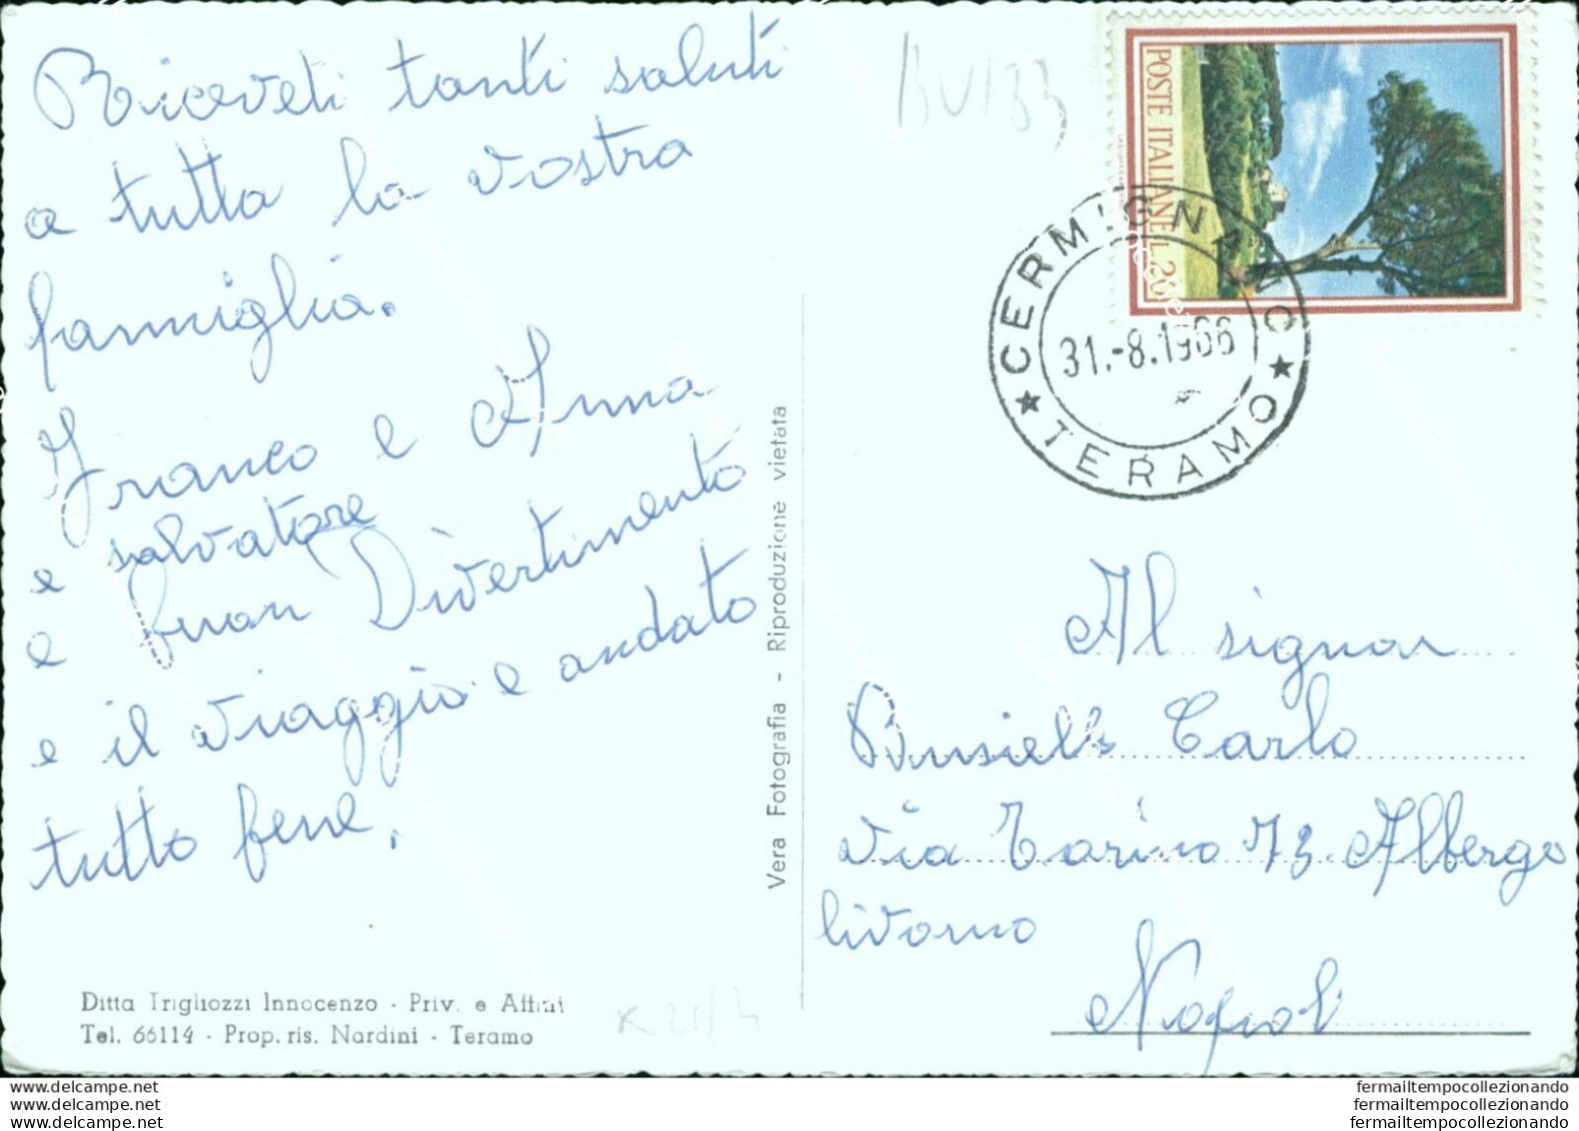 Riceveti tanti saluti
a tutta la vostra
famiglia.
Franco e Anna
e salvatore
e buon Divertimento
e il viaggio e andato
tutto bene.
Ditta Trigliozzi Innocenzo - Priv. e Affini
Tel. 66114 - Prop. ris. Nardini - Teramo
Vera Fotografia - Riproduzione vietata
BU133
K 21/
POSTE ITALIANE L. 20
CERMIGNANO
31.-8.1966
★ TERAMO ★
Al signor
Busiello Carlo
via Torino 73 Albergo
livorno
Napoli
delcampe.net
www.delcampe.net
www.delcampe.net
fermailtempocollezionando
fermailtempocollezionando
fermailtempocollezionando